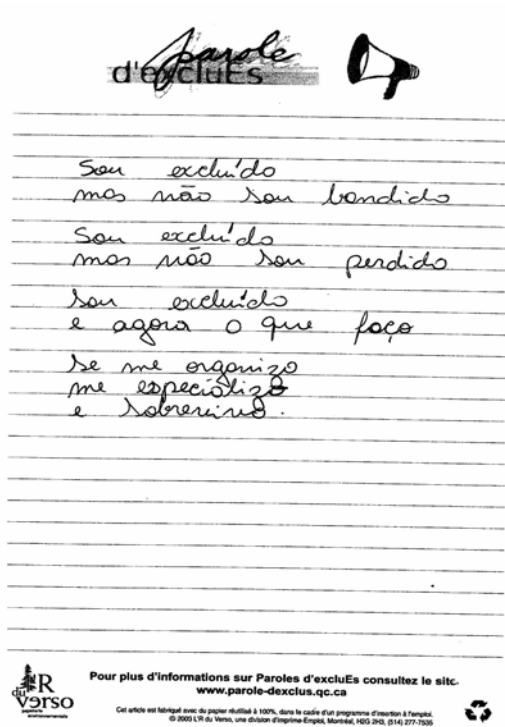 parole
d'excluEs
Sou excluído
mas não sou bandido
Sou excluído
mas não sou perdido
Sou excluído
e agora o que faço
Se me organizo
me especializo
e
du R
VERSO
papeterie
environnementale
Pour plus d'informations sur Paroles d'excluEs consultez le site.
www.parole-dexclus.qc.ca
Cet article est fabriqué avec du papier réutilisé à 100%, dans le cadre d'un programme d'insertion à l'emploi.
© 2003 L'R du Verso, une division d'Imprime-Emploi, Montréal, H2G 2H3, (514) 277-7535